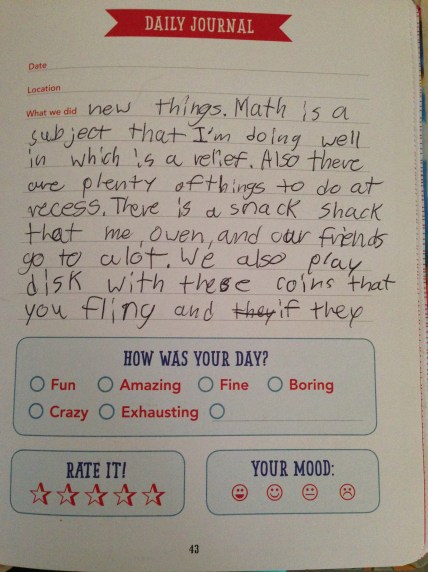 DAILY JOURNAL
Date
Location
What we did new things. Math is a
subject that I'm doing well
in which is a relief. Also there
are plenty of things to do at
recess. There is a snack shack
that me, owen, and our friends
go to alot. We also play
disk with these coins that
you fling and they if they
HOW WAS YOUR DAY?
Fun Amazing Fine Boring
Crazy Exhausting
RATE IT! YOUR MOOD:
43